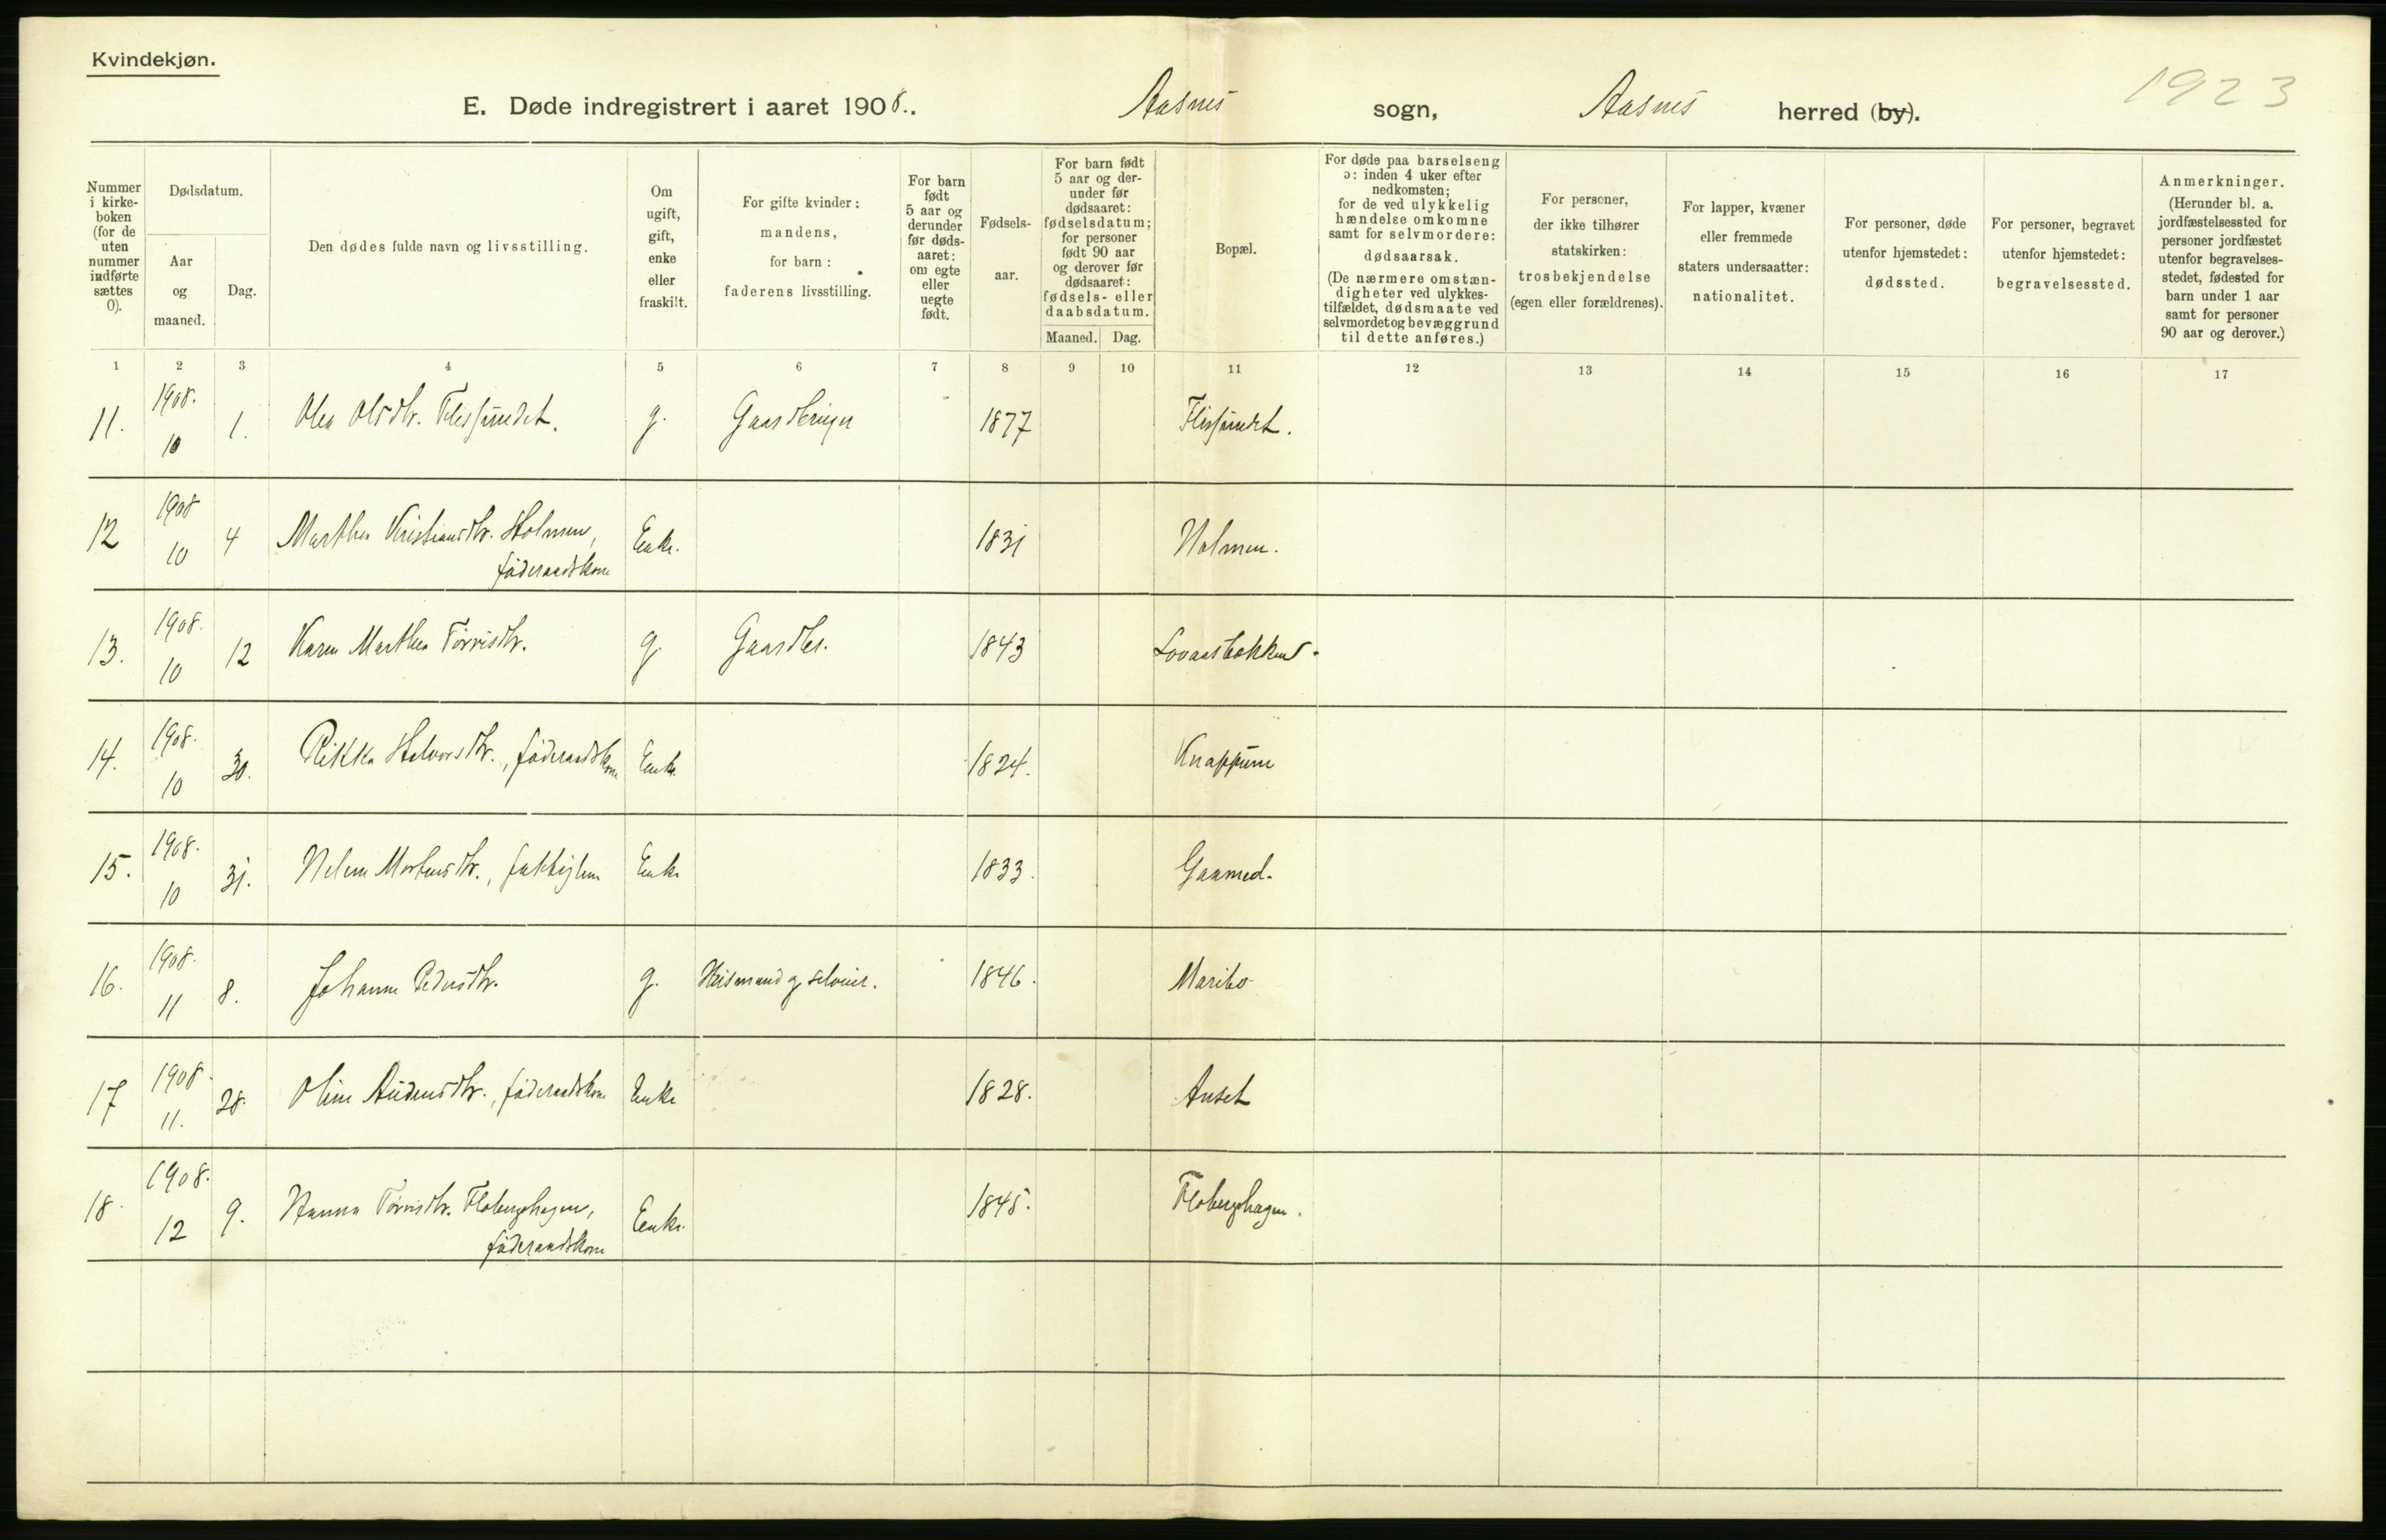 Kvindekjøn.
1923
E. Døde indregistrert i aaret 1908. Aasnes sogn, Aasnes herred (by).
Nummer i kirke-boken (for de uten nummer indførte sættes 0).
Dødsdatum.
Aar og maaned.
Dag.
Den dødes fulde navn og livsstilling.
Om ugift, gift, enke eller fraskilt.
For gifte kvinder: mandens, for barn: faderens livsstilling.
For barn født 5 aar og derunder før døds-aaret: om egte eller uegte født.
Fødsels-aar.
For barn født 5 aar og der-under før dødsaaret: fødselsdatum; for personer født 90 aar og derover før dødsaaret: fødsels- eller daabsdatum.
Maaned. Dag.
Bopæl.
For døde paa barselseng ɔ: inden 4 uker efter nedkomsten; for de ved ulykkelig hændelse omkomne samt for selvmordere: dødsaarsak. (De nærmere omstæn-digheter ved ulykkes-tilfældet, dødsmaate ved selvmord et og bevæggrund til dette anføres.)
For personer, der ikke tilhører statskirken: trosbekjendelse (egen eller forældrenes).
For lapper, kvæner eller fremmede staters undersaatter: nationalitet.
For personer, døde utenfor hjemstedet: dødssted.
For personer, begravet utenfor hjemstedet: begravelsessted.
Anmerkninger. (Herunder bl. a. jordfæstelsessted for personer jordfæstet utenfor begravelses-stedet, fødested for barn under 1 aar samt for personer 90 aar og derover.)
1 2 3 4 5 6 7 8 9 10 11 12 13 14 15 16 17
11. 1908. 10 1. Olea Olsdtr. Flissundet. g. Gaardbruger 1877 Flissundet.
12 1908 10 4 Marthea Kristiansdtr. Holmen, føderaadskone Enke. 1831 Holmen.
13. 1908. 10 12 Karen Marthea Torvisdtr. g. Gaardbr. 1843 Lovaasbakken.
14. 1908. 10 30. Rikka Halvorsdtr., føderaadskone Enke 1824. Knappum
15. 1908. 10 31. Helene Mortensdtr., fattiglem Enke 1833. Gaamed.
16. 1908. 11 8. Johanne Pedersdtr. g. Husmand og selveier. 1846. Maribo
17 1908. 11. 28. Oline Audensdtr., føderaadskone Enke 1828. Auset
18. 1908. 12 9. Hanna Torvisdtr. Floberghagen, føderaadskone Enke. 1845. Floberghagen.